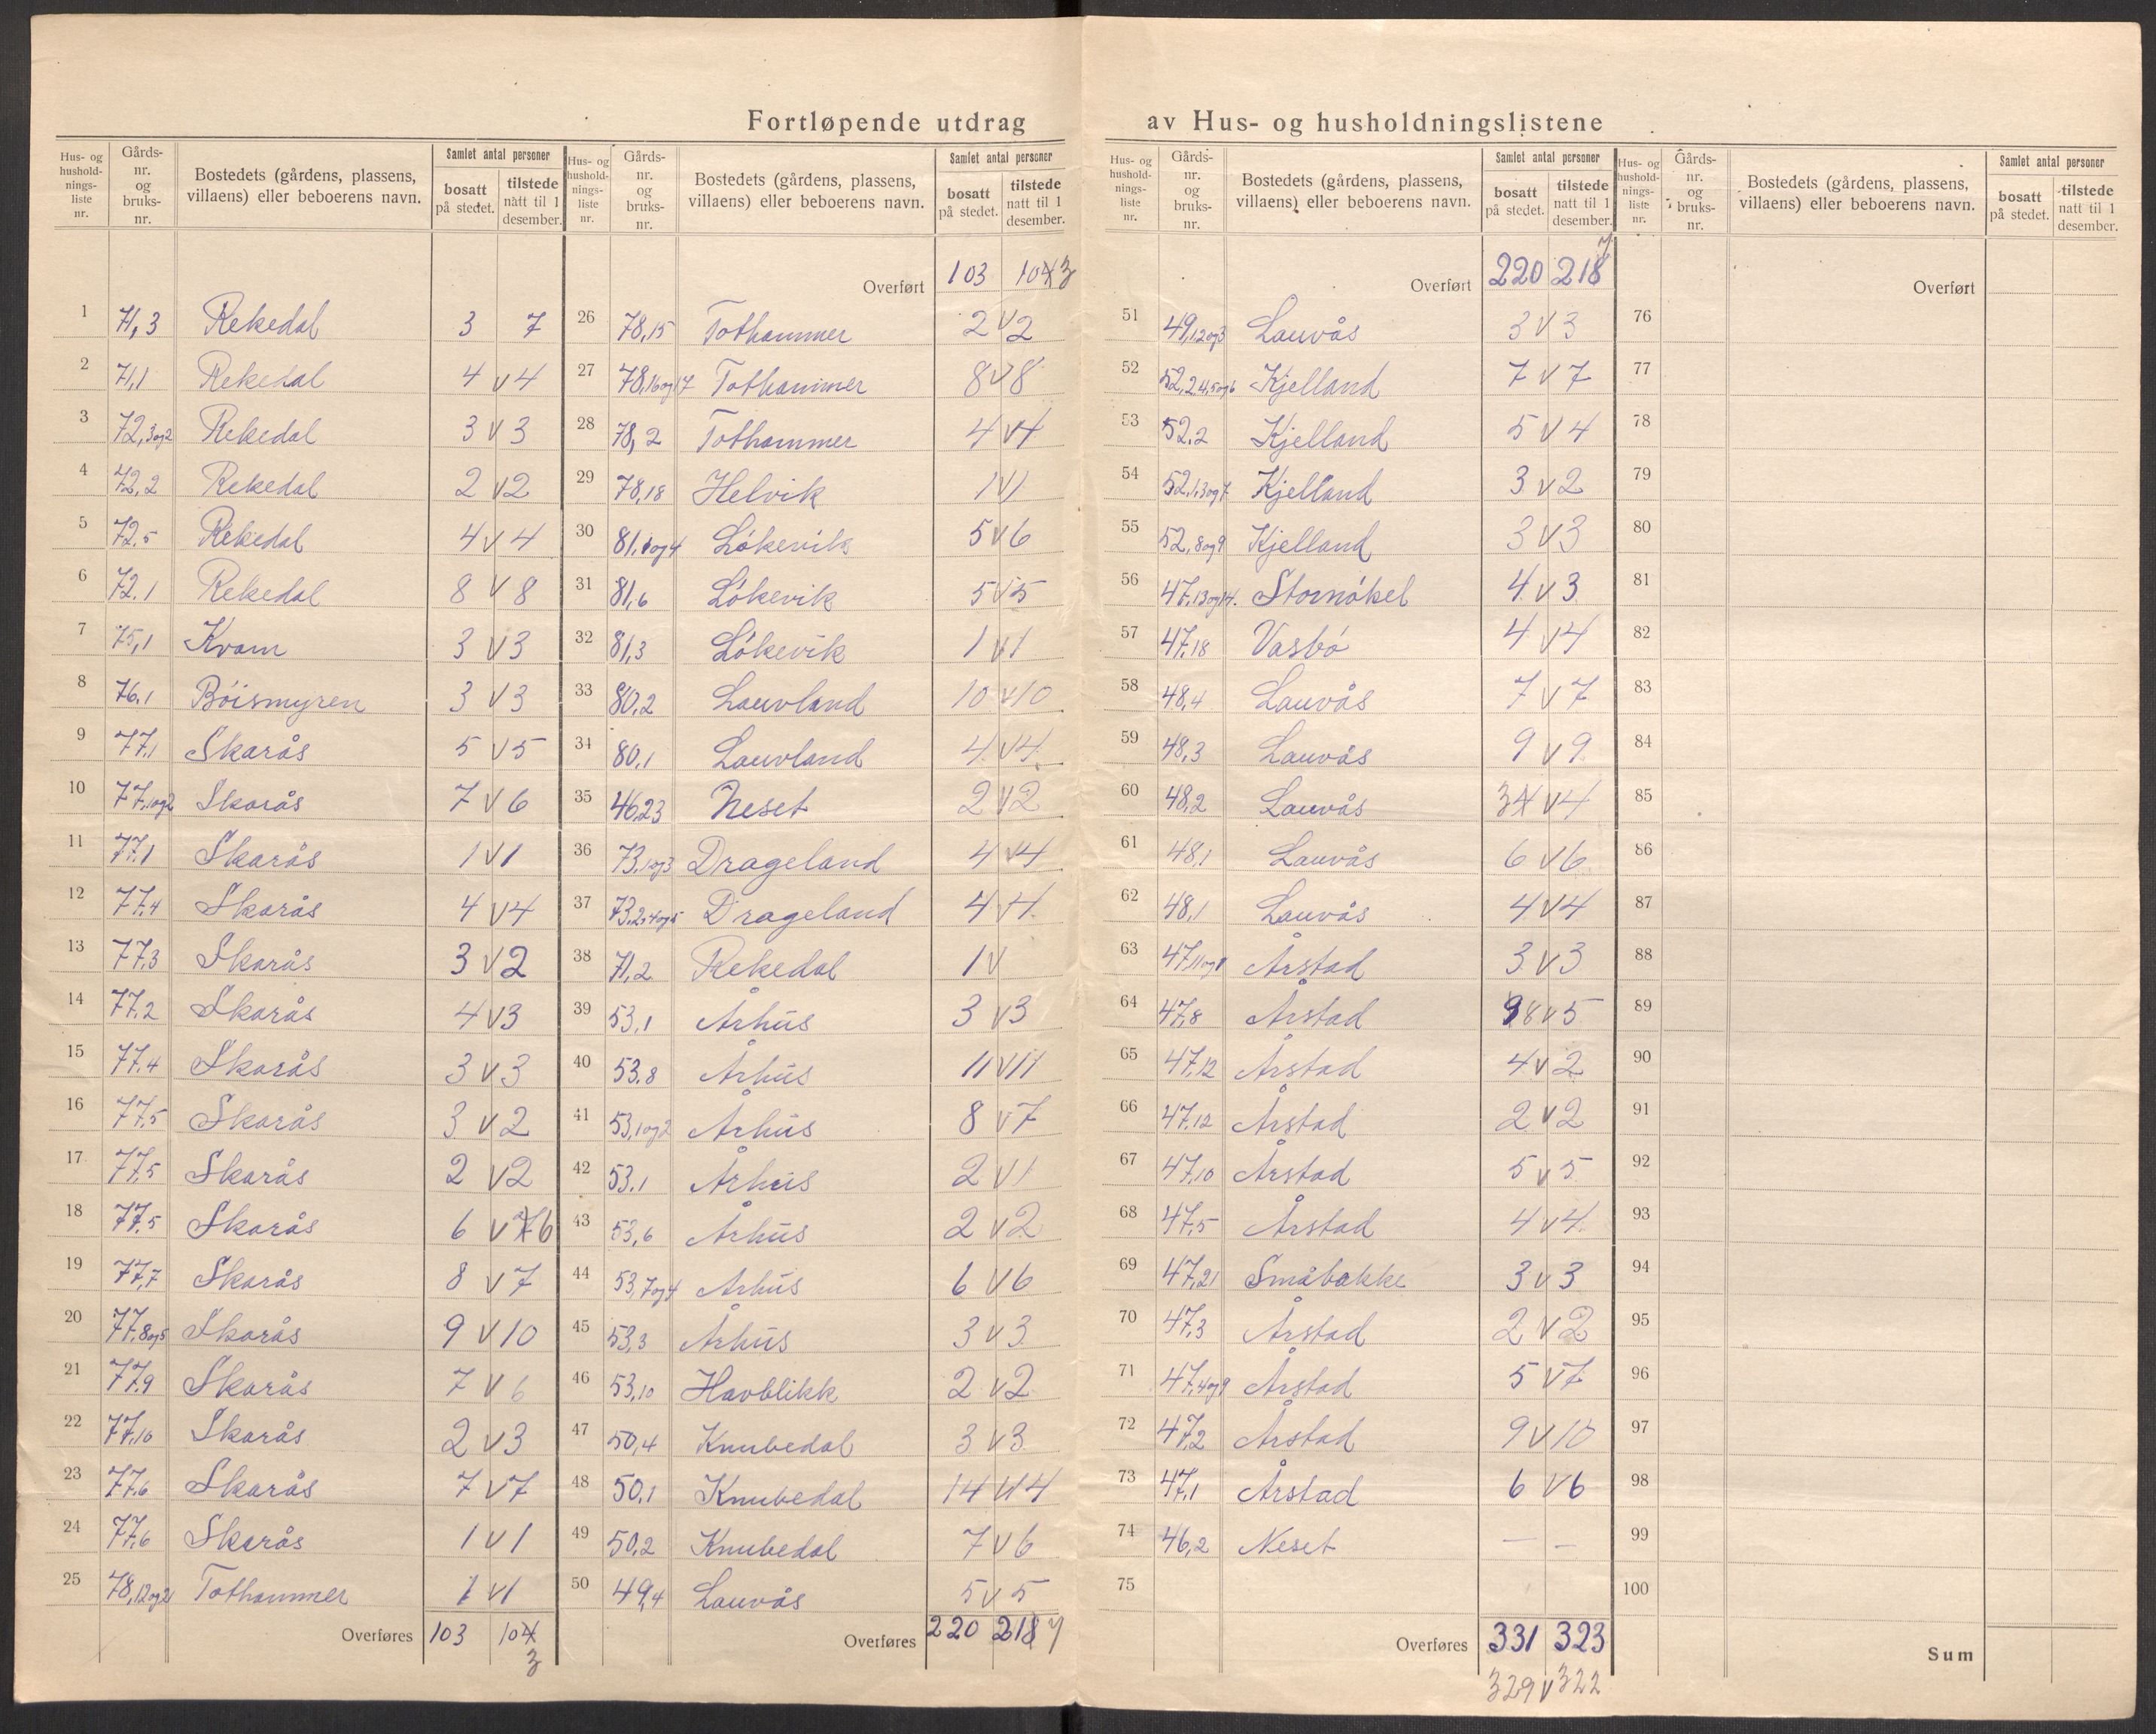 Fortløpende utdrag av Hus- og husholdningslistene
Hus- og hushold-nings-liste nr. | Gårds-nr. og bruks-nr. | Bostedets (gårdens, plassens, villaens) eller beboerens navn. | Samlet antal personer | bosatt på stedet. | tilstede natt til 1 desember.
1 71,3 Rekedal 3 7
2 71,1 Rekedal 4 v 4
3 72,3og2 Rekedal 3 v 3
4 72,2 Rekedal 2 v 2
5 72,5 Rekedal 4 v 4
6 72.1 Rekedal 8 v 8
7 75,1 Kvam 3 v 3
8 76.1 Bóismyren 3 v 3
9 77,1 Skarås 5 v 5
10 77,1og2 Skarås 7 v 6
11 77.1 Skarås 1 v 1
12 77.4 Skarås 4 v 4
13 77.3 Skarås 3 v 2
14 77.2 Skarås 4 v 3
15 77.4 Skarås 3 v 3
16 77.5 Skarås 3 v 2
17 77.5 Skarås 2 v 2
18 77.5 Skarås 6 v 7 6
19 77,7 Skarås 8 v 7
20 77.8og5 Skarås 9 v 10
21 77.9 Skarås 7 v 6
22 77.10 Skarås 2 v 3
23 77.6 Skarås 7 v 7
24 77.6 Skarås 1 v 1
25 78,12og21 Tothammer 1 v 1
Overføres 103 104
3
Hus- og hushold-nings-liste nr. | Gårds-nr. og bruks-nr. | Bostedets (gårdens, plassens, villaens) eller beboerens navn. | Samlet antal personer | bosatt på stedet. | tilstede natt til 1 desember.
Overført 103 104 3
26 78,15 Tothammer 2 v 2
27 78,16og17 Tothammer 8 v 8
28 78,2 Tothammer 4 v 4
29 78,18 Helvik 1 v 1
30 81,1og4 Lókevik 5 v 6
31 81,6 Lókevik 5 v 5
32 81,3 Lókevik 1 v 1
33 80,2 Lauvland 10 v 10
34 80,1 Lauvland 4 v 4
35 46,23 Neset 2 v 2
36 73,1og3 Drageland 4 v 4
37 73,2,4og5 Drageland 4 v 4
38 71,2 Rekedal 1 v
39 53,1 Århus 3 v 3
40 53,8 Århus 11 v 11
41 53,1og2 Århus 8 v 7
42 53.1 Århus 2 v 1
43 53,6 Århus 2 v 2
44 53,7og4 Århus 6 v 6
45 53,3 Århus 3 v 3
46 53,10 Havblikk 2 v 2
47 50,4 Knubedal 3 v 3
48 50,1 Knubedal 14 v 14
49 50,2 Knubedal 7 v 6
50 49,4 Lauvås 5 v 5
Overføres 220 218 7
Hus- og hushold-nings-liste nr. | Gårds-nr. og bruks-nr. | Bostedets (gårdens, plassens, villaens) eller beboerens navn. | Samlet antal personer | bosatt på stedet. | tilstede natt til 1 desember.
Overført 220 218 7
51 49,1,2og3 Lauvås 3 v 3
52 52,2,4,5og6 Kjelland 7 v 7
53 52,2 Kjelland 5 v 4
54 52,1,3og7 Kjelland 3 v 2
55 52,8og9 Kjelland 3 v 3
56 47,13og14. Stornókel 4 v 3
57 47,18 Vasbó 4 v 4
58 48,4 Lauvås 7 v 7
59 48,3 Lauvås 9 v 9
60 48,2 Lauvås 3 4 v 4
61 48,1 Lauvås 6 v 6
62 48,1 Lauvås 4 v 4
63 Årstad 3 v 3
64 47,8 Årstad 9 8 v 5
65 47,12 Årstad 4 v 2
66 47,12 Årstad 2 v 2
67 47,10 Årstad 5 v 5
68 47,5 Årstad 4 v 4
69 47,21 Småbakke 3 v 3
70 47,3 Årstad 2 v 2
71 47,4og9 Årstad 5 v 7
72 47,2 Årstad 9 v 10
73 47,1 Årstad 6 v 6
74 46,2 Neset — —
75
Overføres 331 323
329 v 322
Hus- og hushold-nings-liste nr. | Gårds-nr. og bruks-nr. | Bostedets (gårdens, plassens, villaens) eller beboerens navn. | Samlet antal personer | bosatt på stedet. | tilstede natt til 1 desember.
Overført
76
77
78
79
80
81
82
83
84
85
86
87
88
89
90
91
92
93
94
95
96
97
98
99
100
Sum